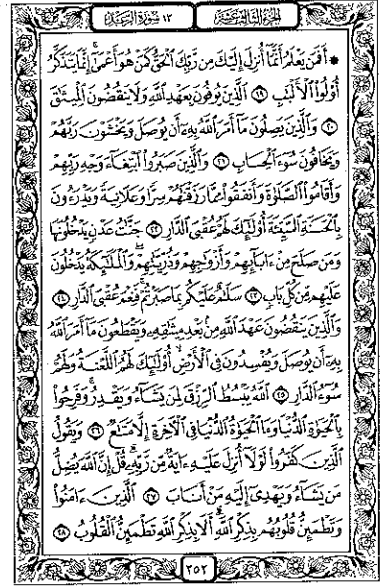 الجزء الثالث عشر
١٣ سورة الرعد
۞ أَفَمَن يَعْلَمُ أَنَّمَا أُنزِلَ إِلَيْكَ مِن رَّبِّكَ الْحَقُّ كَمَنْ هُوَ أَعْمَىٰ إِنَّمَا يَتَذَكَّرُ
أُولُوا الْأَلْبَٰبِ ١٩ الَّذِينَ يُوفُونَ بِعَهْدِ اللَّهِ وَلَا يَنقُضُونَ الْمِيثَٰقَ
٢٠ وَالَّذِينَ يَصِلُونَ مَا أَمَرَ اللَّهُ بِهِ أَن يُوصَلَ وَيَخْشَوْنَ رَبَّهُمْ
وَيَخَافُونَ سُوءَ الْحِسَابِ ٢١ وَالَّذِينَ صَبَرُوا ابْتِغَاءَ وَجْهِ رَبِّهِمْ
وَأَقَامُوا الصَّلَوٰةَ وَأَنفَقُوا مِمَّا رَزَقْنَٰهُمْ سِرًّا وَعَلَانِيَةً وَيَدْرَءُونَ
بِالْحَسَنَةِ السَّيِّئَةَ أُولَٰئِكَ لَهُمْ عُقْبَى الدَّارِ ٢٢ جَنَّٰتُ عَدْنٍ يَدْخُلُونَهَا
وَمَن صَلَحَ مِنْ ءَابَائِهِمْ وَأَزْوَٰجِهِمْ وَذُرِّيَّٰتِهِمْ وَالْمَلَٰئِكَةُ يَدْخُلُونَ
عَلَيْهِم مِّن كُلِّ بَابٍ ٢٣ سَلَٰمٌ عَلَيْكُم بِمَا صَبَرْتُمْ فَنِعْمَ عُقْبَى الدَّارِ ٢٤
وَالَّذِينَ يَنقُضُونَ عَهْدَ اللَّهِ مِن بَعْدِ مِيثَٰقِهِ وَيَقْطَعُونَ مَا أَمَرَ اللَّهُ
بِهِ أَن يُوصَلَ وَيُفْسِدُونَ فِي الْأَرْضِ أُولَٰئِكَ لَهُمُ اللَّعْنَةُ وَلَهُمْ
سُوءُ الدَّارِ ٢٥ اللَّهُ يَبْسُطُ الرِّزْقَ لِمَن يَشَاءُ وَيَقْدِرُ وَفَرِحُوا
بِالْحَيَوٰةِ الدُّنْيَا وَمَا الْحَيَوٰةُ الدُّنْيَا فِي الْءَاخِرَةِ إِلَّا مَتَٰعٌ ٢٦ وَيَقُولُ
الَّذِينَ كَفَرُوا لَوْلَا أُنزِلَ عَلَيْهِ ءَايَةٌ مِّن رَّبِّهِ قُلْ إِنَّ اللَّهَ يُضِلُّ
مَن يَشَاءُ وَيَهْدِي إِلَيْهِ مَنْ أَنَابَ ٢٧ الَّذِينَ ءَامَنُوا
وَتَطْمَئِنُّ قُلُوبُهُم بِذِكْرِ اللَّهِ أَلَا بِذِكْرِ اللَّهِ تَطْمَئِنُّ الْقُلُوبُ ٢٨
٢٥٢